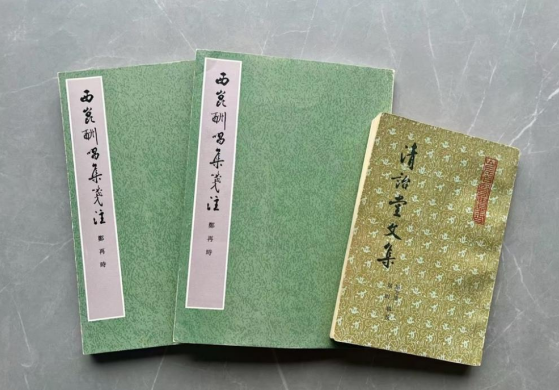 西崑酬唱集笺注
鄭再時
西崑酬唱集笺注
鄭再時
清詒堂文集